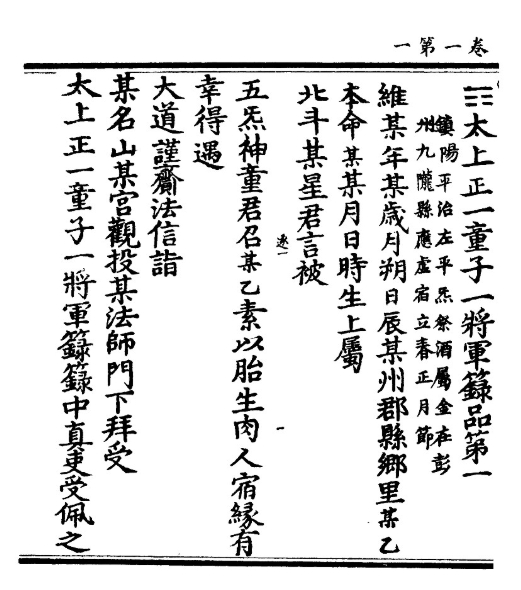 卷一第一
太上正一童子一將軍籙品第一
鎮陽平治左平炁祭酒屬金在彭
州九隴縣應虛宿立春正月節
維某年某歲月朔日辰某州郡縣鄉里某乙
本命某某月日時生上屬
北斗某星君言被
五炁神童君召某乙素以胎生肉人宿緣有
幸得遇
大道謹齎法信詣
某名山某宮觀投某法師門下拜受
太上正一童子一將軍籙籙中真吏受佩之